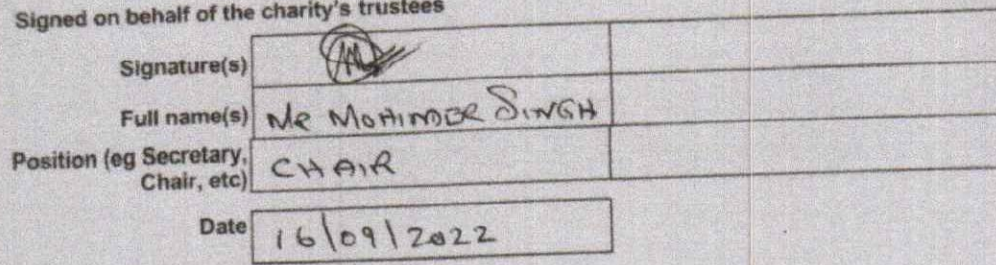 Signed on behalf of the charity's trustees
Signature(s)
Full name(s) Mr MOHINDER SINGH
Position (eg Secretary, Chair, etc) CHAIR
Date 16/09/2022